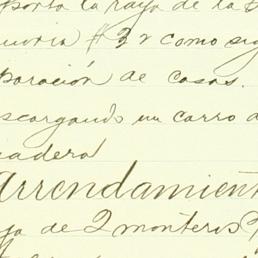 porta la raya de la
#3 y como sig
paración de casas.
escargando un carro d
adera
arrendamient
ja de 2 monteros